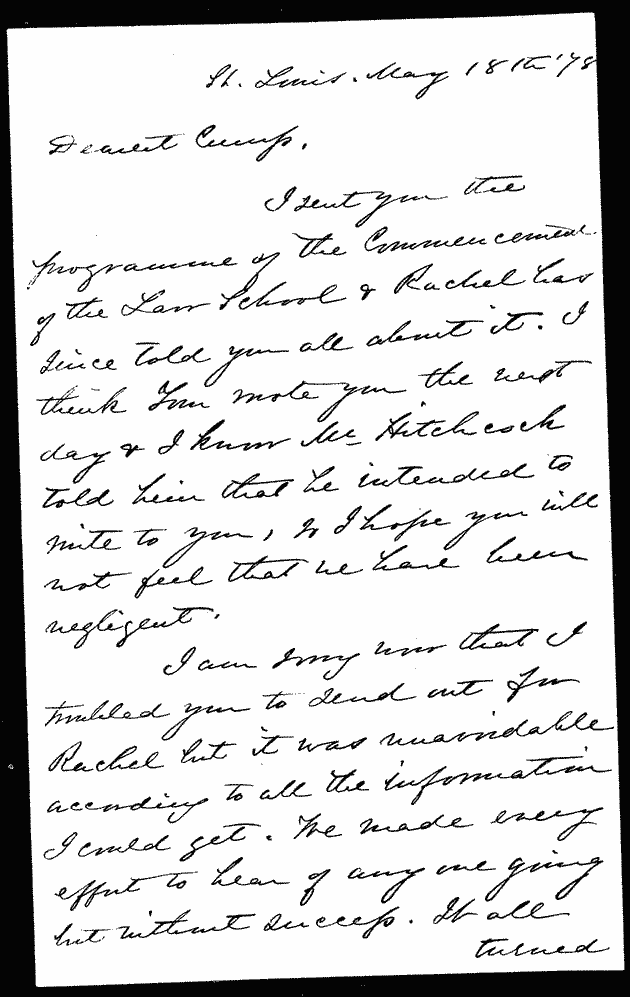 St. Louis. May 18th '78
Dearest Cump,
I sent you the
programme of the Commencement
of the Law School & Rachel has
since told you all about it. I
think Tom wrote you the next
day & I know Mr Hitchcock
told him that he intended to
write to you, so I hope you will
not feel that we have been
negligent.
I am sorry now that I
troubled you to send out for
Rachel but it was unavoidable
according to all the information
I could get. We made every
effort to hear of any one going
but without success. It all
turned